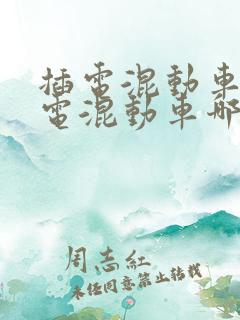 插電混動車
電混動車哪
周志紅
未经同意禁止转载